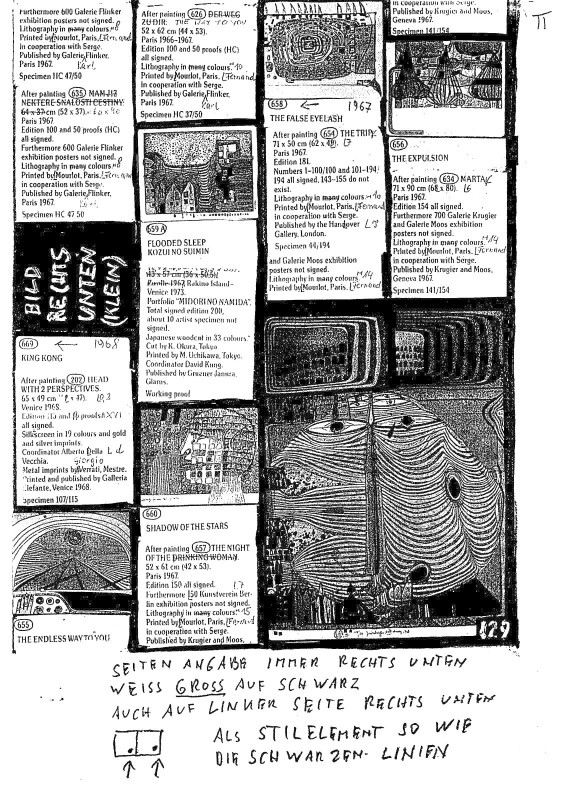 Furthermore 600 Galerie Flinker
exhibition posters not signed.
Lithography in many colours.
Printed by Mourlot, Paris,
in cooperation with Serge.
Published by Galerie Flinker,
Paris 1967.
Specimen HC 47/50
After painting 635
Paris 1967.
Edition 100 and 50 proofs (HC)
all signed.
Furthermore 600 Galerie Flinker
exhibition posters not signed.
Lithography in many colours.
Printed by Mourlot, Paris,
in cooperation with Serge.
Published by Galerie Flinker,
Paris 1967.
Specimen HC 47 50
BILD
RECHTS
UNTEN
(KLEIN)
669 ← 1968
KING KONG
After painting 202 HEAD
WITH 2 PERSPECTIVES.
65 x 49 cm
Venice 1968.
all signed.
Silkscreen in 19 colours and gold
and silver imprints.
Coordinator Alberto Della
Vecchia. Giorgio
Metal imprints by Verrati, Mestre.
Printed and published by Galleria
Elefante, Venice 1968.
Specimen 107/115
655
THE ENDLESS WAY TO YOU
After painting 626 DER WEG
ZU DIR: THE WAY TO YOU
52 x 62 cm (44 x 53).
Paris 1966-1967.
Edition 100 and 50 proofs (HC)
all signed.
Lithography in many colours.
Printed by Mourlot, Paris,
in cooperation with Serge.
Published by Galerie Flinker,
Paris 1967.
Specimen HC 37/50
659 A
FLOODED SLEEP
KOZUI NO SUIMIN
Rakino Island-
Venice 1973.
Portfolio "MIDORI NO NAMIDA".
Total signed edition 200,
about 10 artist specimen not
signed.
Japanese woodcut in 33 colours.
Cut by K. Okura, Tokyo.
Printed by M. Uchikawa, Tokyo.
Coordinator David Kung.
Published by Gruener Janura,
Glarus.
Working proof
660
SHADOW OF THE STARS
After painting 657 THE NIGHT
OF THE DRINKING WOMAN.
52 x 61 cm (42 x 53).
Paris 1967.
Edition 150 all signed.
Furthermore 150 Kunstverein Ber-
lin exhibition posters not signed.
Lithography in many colours.
Printed by Mourlot, Paris,
in cooperation with Serge.
Published by Krugier and Moos,
658 ← 1967
THE FALSE EYELASH
After painting 654 THE TRIP.
71 x 50 cm
Paris 1967.
Edition 181.
Numbers 1-100/100 and 101-194/
194 all signed. 143-155 do not
exist.
Lithography in many colours.
Printed by Mourlot, Paris,
in cooperation with Serge.
Published by the Hanover
Gallery, London.
Specimen 44/194
and Galerie Moos exhibition
posters not signed.
Lithography in many colours.
Printed by Mourlot, Paris,
in cooperation with Serge.
Published by Krugier and Moos,
Geneva 1967.
Specimen 141/154
656
THE EXPULSION
After painting 634 MARTA
71 x 90 cm
Paris 1967.
Edition 154 all signed.
Furthermore 700 Galerie Krugier
and Galerie Moos exhibition
posters not signed.
Lithography in many colours.
Printed by Mourlot, Paris,
in cooperation with Serge.
Published by Krugier and Moos,
Geneva 1967.
Specimen 141/154
II
129
SEITEN ANGABE IMMER RECHTS UNTEN
WEISS GROSS AUF SCHWARZ
AUCH AUF LINKER SEITE RECHTS UNTEN
ALS STILELEMENT SO WIE
DIE SCHWARZEN LINIEN